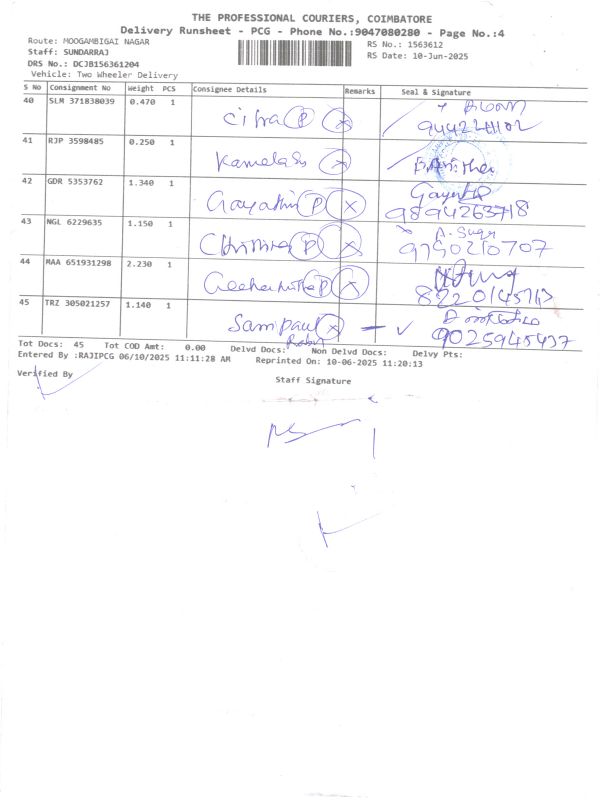 THE PROFESSIONAL COURIERS, COIMBATORE
Delivery Runsheet - PCG - Phone No.:9047080280 - Page No.:4
Route: MOOGAMBIGAI NAGAR RS No.: 1563612
Staff: SUNDARRAJ RS Date: 10-Jun-2025
DRS No.: DCJB156361204
Vehicle: Two Wheeler Delivery
S No Consignment No Weight PCS Consignee Details Remarks Seal & Signature
40 SLM 371838039 0.470 1 P X
41 RJP 3598485 0.250 1 X
42 GDR 5353762 1.340 1 Gayathri P X
9894263718
43 NGL 6229635 1.150 1 Chithra P X A. Suga
9790210707
44 MAA 651931298 2.230 1 P X
45 TRZ 305021257 1.140 1 Sam paul X
9025945437
Tot Docs: 45 Tot COD Amt: 0.00 Delvd Docs: Non Delvd Docs: Delvy Pts:
Entered By :RAJIPCG 06/10/2025 11:11:28 AM Reprinted On: 10-06-2025 11:20:13
Verified By
Staff Signature